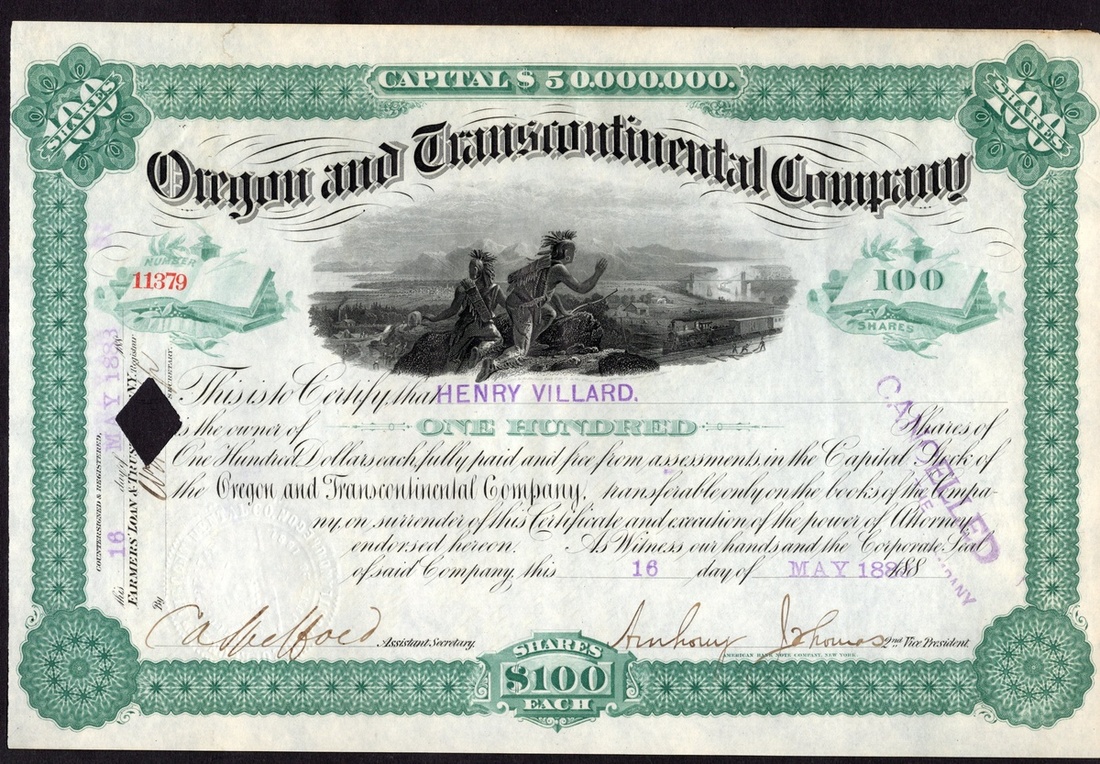 CAPITAL $50.000.000.
100 SHARES
100 SHARES
Oregon and Transcontinental Company
NUMBER
11379
100
SHARES
This is to Certify that HENRY VILLARD.
is the owner of ONE HUNDRED Shares of
One Hundred Dollars each, fully paid and free from assessments, in the Capital Stock of
the Oregon and Transcontinental Company, transferable only on the books of the Compa-
ny, on surrender of this Certificate and execution of the power of Attorney
endorsed hereon. As Witness, our hands and the Corporate Seal
of said Company, this 16 day of MAY 188 188
Assistant Secretary.
Anthony J Thomas 2nd Vice President.
AMERICAN BANK NOTE COMPANY, NEW YORK.
SHARES
$100
EACH
COUNTERSIGNED & REGISTERED,
this 16 day of MAY 1883 188
FARMERS' LOAN & TRUST NY. Registrar
By SECRETARY.
CANCELLED